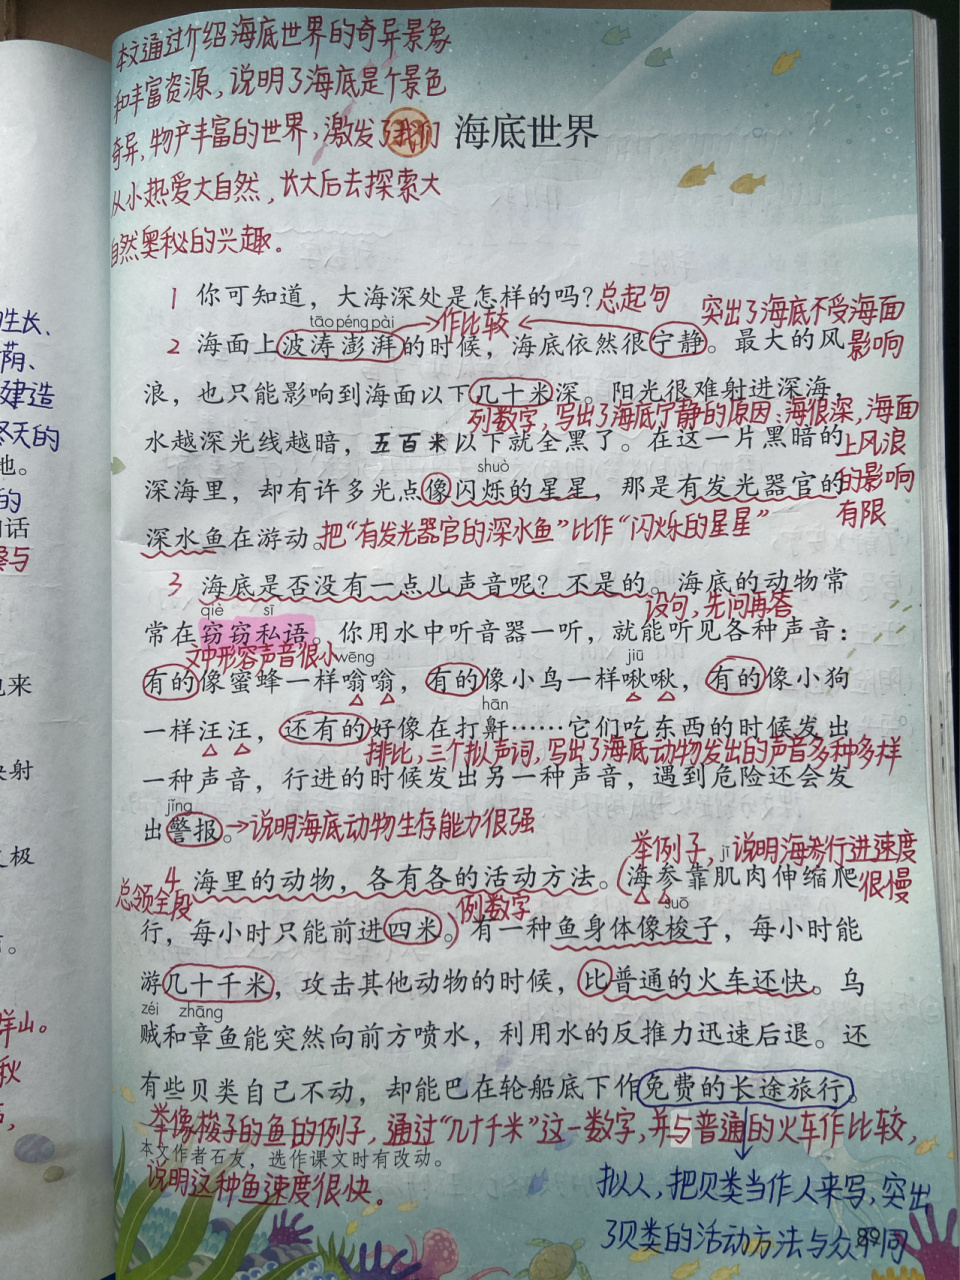 本文通过介绍海底世界的奇异景象
和丰富资源，说明了海底是个景色
奇异，物产丰富的世界，激发了我们
从小热爱大自然，长大后去探索大
自然奥秘的兴趣。
海底世界
1 你可知道，大海深处是怎样的吗？总起句
tāo péng pài
作比较
突出了海底不受海面
影响
2 海面上波涛澎湃的时候，海底依然很宁静。最大的风
浪，也只能影响到海面以下几十米深。阳光很难射进深海，
列数字，写出了海底宁静的原因：海很深，海面
上风浪
的影响
有限
水越深光线越暗，五百米以下就全黑了。在这一片黑暗的
shuò
深海里，却有许多光点像闪烁的星星，那是有发光器官的
深水鱼在游动。把“有发光器官的深水鱼”比作“闪烁的星星”
3 海底是否没有一点儿声音呢？不是的。海底的动物常
设句，先问再答
qiè sī
常在窃窃私语。你用水中听音器一听，就能听见各种声音：
文中形容声音很小
wēng jiū
有的像蜜蜂一样嗡嗡，有的像小鸟一样啾啾，有的像小狗
hān
一样汪汪，还有的好像在打鼾……它们吃东西的时候发出
排比，三个拟声词，写出了海底动物发出的声音多种多样
一种声音，行进的时候发出另一种声音，遇到危险还会发
jǐng
出警报。→说明海底动物生存能力很强
举例子，说明海参行进速度
很慢
jī
4 海里的动物，各有各的活动方法。海参靠肌肉伸缩爬
总领全段
列数字
suō
行，每小时只能前进四米。有一种鱼身体像梭子，每小时能
游几十千米，攻击其他动物的时候，比普通的火车还快。乌
zéi zhāng
贼和章鱼能突然向前方喷水，利用水的反推力迅速后退。还
有些贝类自己不动，却能巴在轮船底下作免费的长途旅行。
举像梭子的鱼的例子，通过“几十千米”这一数字，并与普通的火车作比较，
说明这种鱼速度很快。
本文作者石友，选作课文时有改动。
拟人，把贝类当作人来写，突出
了贝类的活动方法与众不同
89